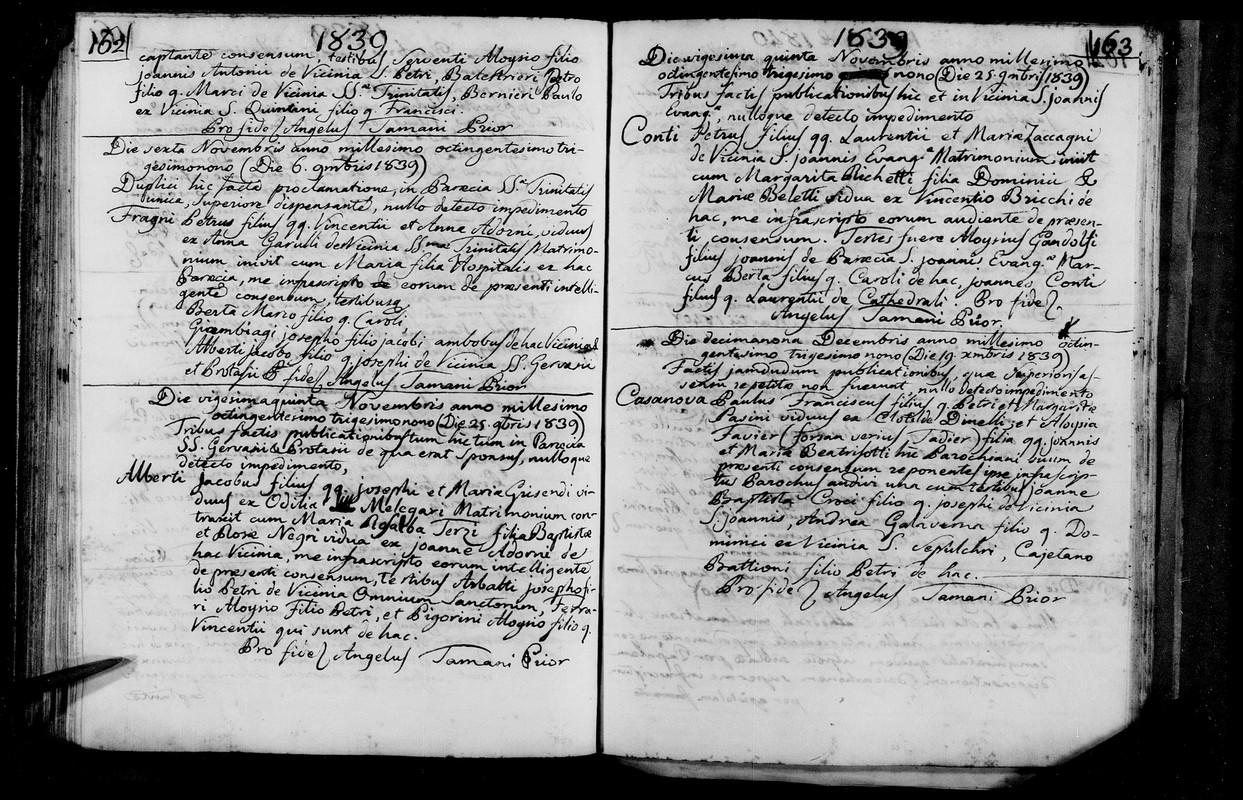 162
1839
captante consensum, testibus Serventi Aloysio filio
Joannis Antonii de Vicinia S. Petri, Balestrieri Petro
filio q. Marci de Vicinia SS.ae Trinitatis, Bernieri Paulo
ex Vicinia S. Quintini filio q. Francisci.
Pro fide Angelus Tamani Prior
Die sexta Novembris anno millesimo octingentesimo tri-
gesimonono (Die 6. 9mbris 1839)
Duplici hic facta proclamatione, in Parœcia SS.ae Trinitatis
unica, Superiore dispensante, nullo detecto impedimento
Fragni Petrus filius qq. Vincentii et Anna Adorni, viduus
ex Anna Garulli de Vicinia SS.mae Trinitatis Matrimo-
nium inivit cum Maria filia Hospitalis ex hac
Parœcia, me infrascripto de eorum de præsenti intelli-
gente consensum, testibusq
Berta Mario filio q. Caroli
Giambiagi Josepho filio Jacobi ambobus de hac Vicinia, et
Alberti Jacobo filio q. Josephi de Vicinia SS. Gervasii
et Protasii P. fide Angelus Tamani Prior
Die vigesimaquinta Novembris anno millesimo
octingentesimo trigesimonono (Die 25. 9bris 1839)
Tribus factis publicationibus tum hic tum in Parœcia
SS. Gervasii & Protasii de qua erat Sponsus, nulloque
detecto impedimento,
Alberti Jacobus filius qq. Josephi et Mariæ Grisendi vi-
duus ex Odilia Melegari Matrimonium con-
traxit cum Maria Rosalba Terzi filia Baptistæ
et Rosæ Negri vidua ex Joanne Adorni de
hac Vicinia, me infrascripto eorum intelligente
de præsenti consensum, testibus Arbatti Josepho fi-
lio Petri de Vicinia Omnium Sanctorum, Ferra-
ri Aloysio Filio Petri, et Pigorini Aloysio filio q.
Vincentii qui sunt de hac.
Pro fide Angelus Tamani Prior
1839
163
Die vigesima quinta Novembris anno millesimo
octingentesimo trigesimo nono (Die 25. 9mbris 1839)
Tribus factis publicationibus hic et in Vicinia S. Joannis
Evang.ae, nulloque detecto impedimento
Conti Petrus filius qq. Laurentii et Mariæ Zaccagni
de Vicinia S. Joannis Evang.ae Matrimonium iniit
cum Margarita Michetti filia Dominici &
Mariæ Beletti vidua ex Vincentio Bricchi de
hac, me infrascripto eorum audiente de præsen-
ti consensum. Testes fuere Aloysius Gandolfi
filius Joannis de Parœcia S. Joannis Evang.ae Mar-
cus Berta filius q. Caroli de hac, Joannes Conti
filius q. Laurentii de Cathedrali. Pro fide
Angelus Tamani Prior.
Die decimanona Decembris anno millesimo octin-
gentesimo trigesimo nono (Die 19. xmbris 1839)
Factis jamdudum publicationibus, quæ Superioris as-
sensu repetitæ non fuerunt, nullo detecto impedimento
Casanova Paulus Franciscus filius q. Petri et Margaritæ
Pasini viduus ex Clotilde Dinelli, et Aloysia
Favier (forsan verius Sadier) filia qq. Joannis
et Mariæ Beatrisotti hic Parochiani suum de
præsenti consensum reponentes ipse infrascrip-
tus Parochus audivi una cum testibus Joanne
Baptista Croci filio q. Josephi de Vicinia
S. Joannis, Andrea Galaverna filio q. Do-
minici ex Vicinia S. Sepulchri, Cajetano
Battioni filio Petri de hac.
Pro fide Angelus Tamani Prior